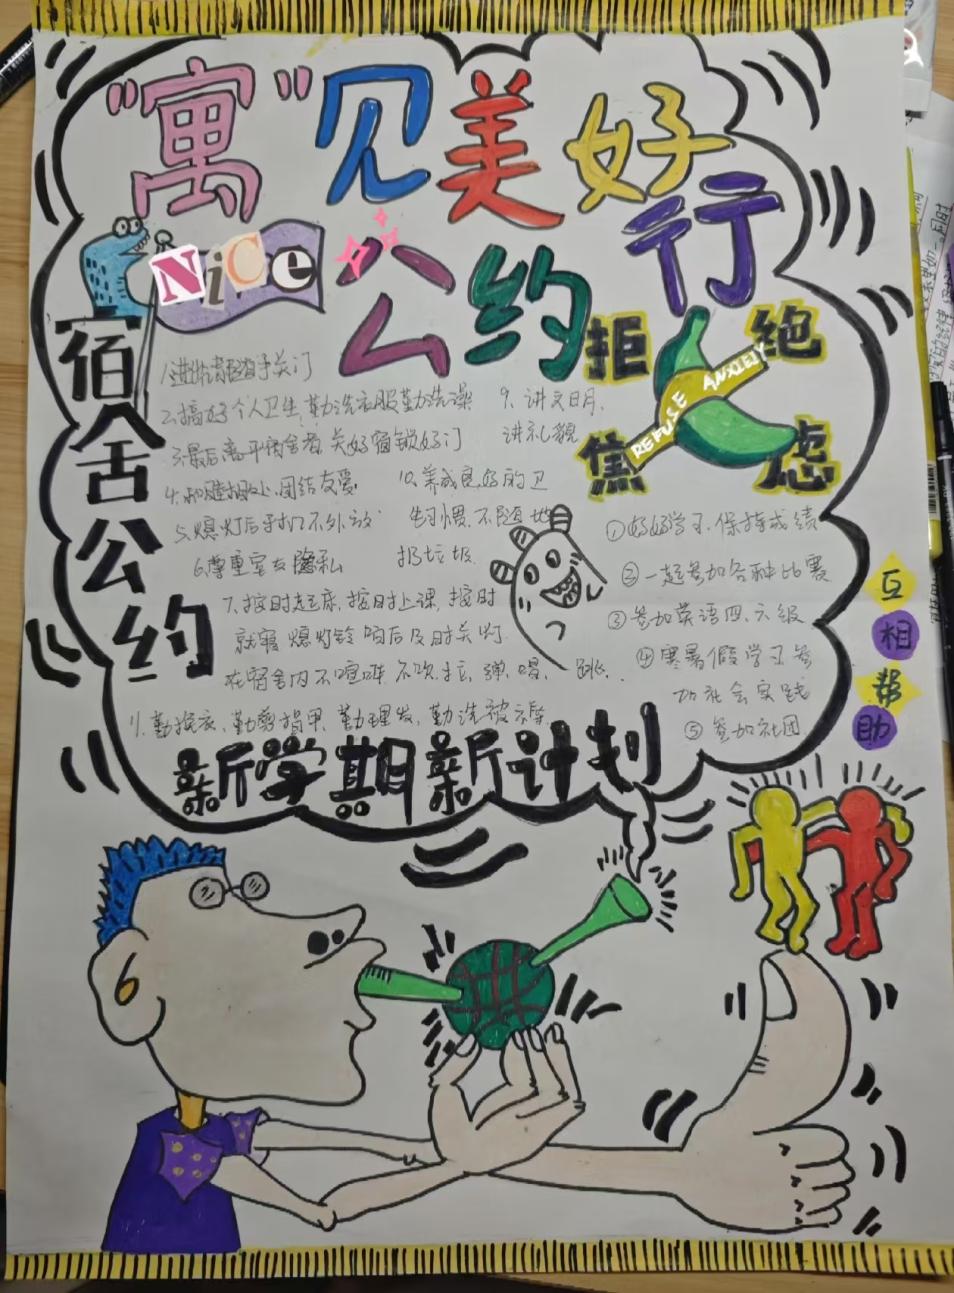 "寓"见美好
行
公约
Nice
宿舍公约
拒绝
焦虑
REFUSE ANXIETY
1.进出宿舍随手关门
2.搞好个人卫生、勤洗衣服勤洗澡
3.最后离开宿舍者 关好窗锁好门
4.和睦相处、团结友爱
5.熄灯后手机不外放
6.尊重室友隐私
7.按时起床,按时上课,按时
就寝 熄灯铃响后及时关灯
在宿舍内不喧哗 不吹、拉、弹、唱、跳..
9、讲文明、
讲礼貌
10、养成良好的卫
生习惯、不随地
扔垃圾
11.勤换衣、勤剪指甲、勤理发、勤洗被子
①好好学习、保持成绩
②一起参加各种比赛
③参加英语四、六级
④寒暑假学习参
加社会实践
⑤参加社团
新学期新计划
互相帮助